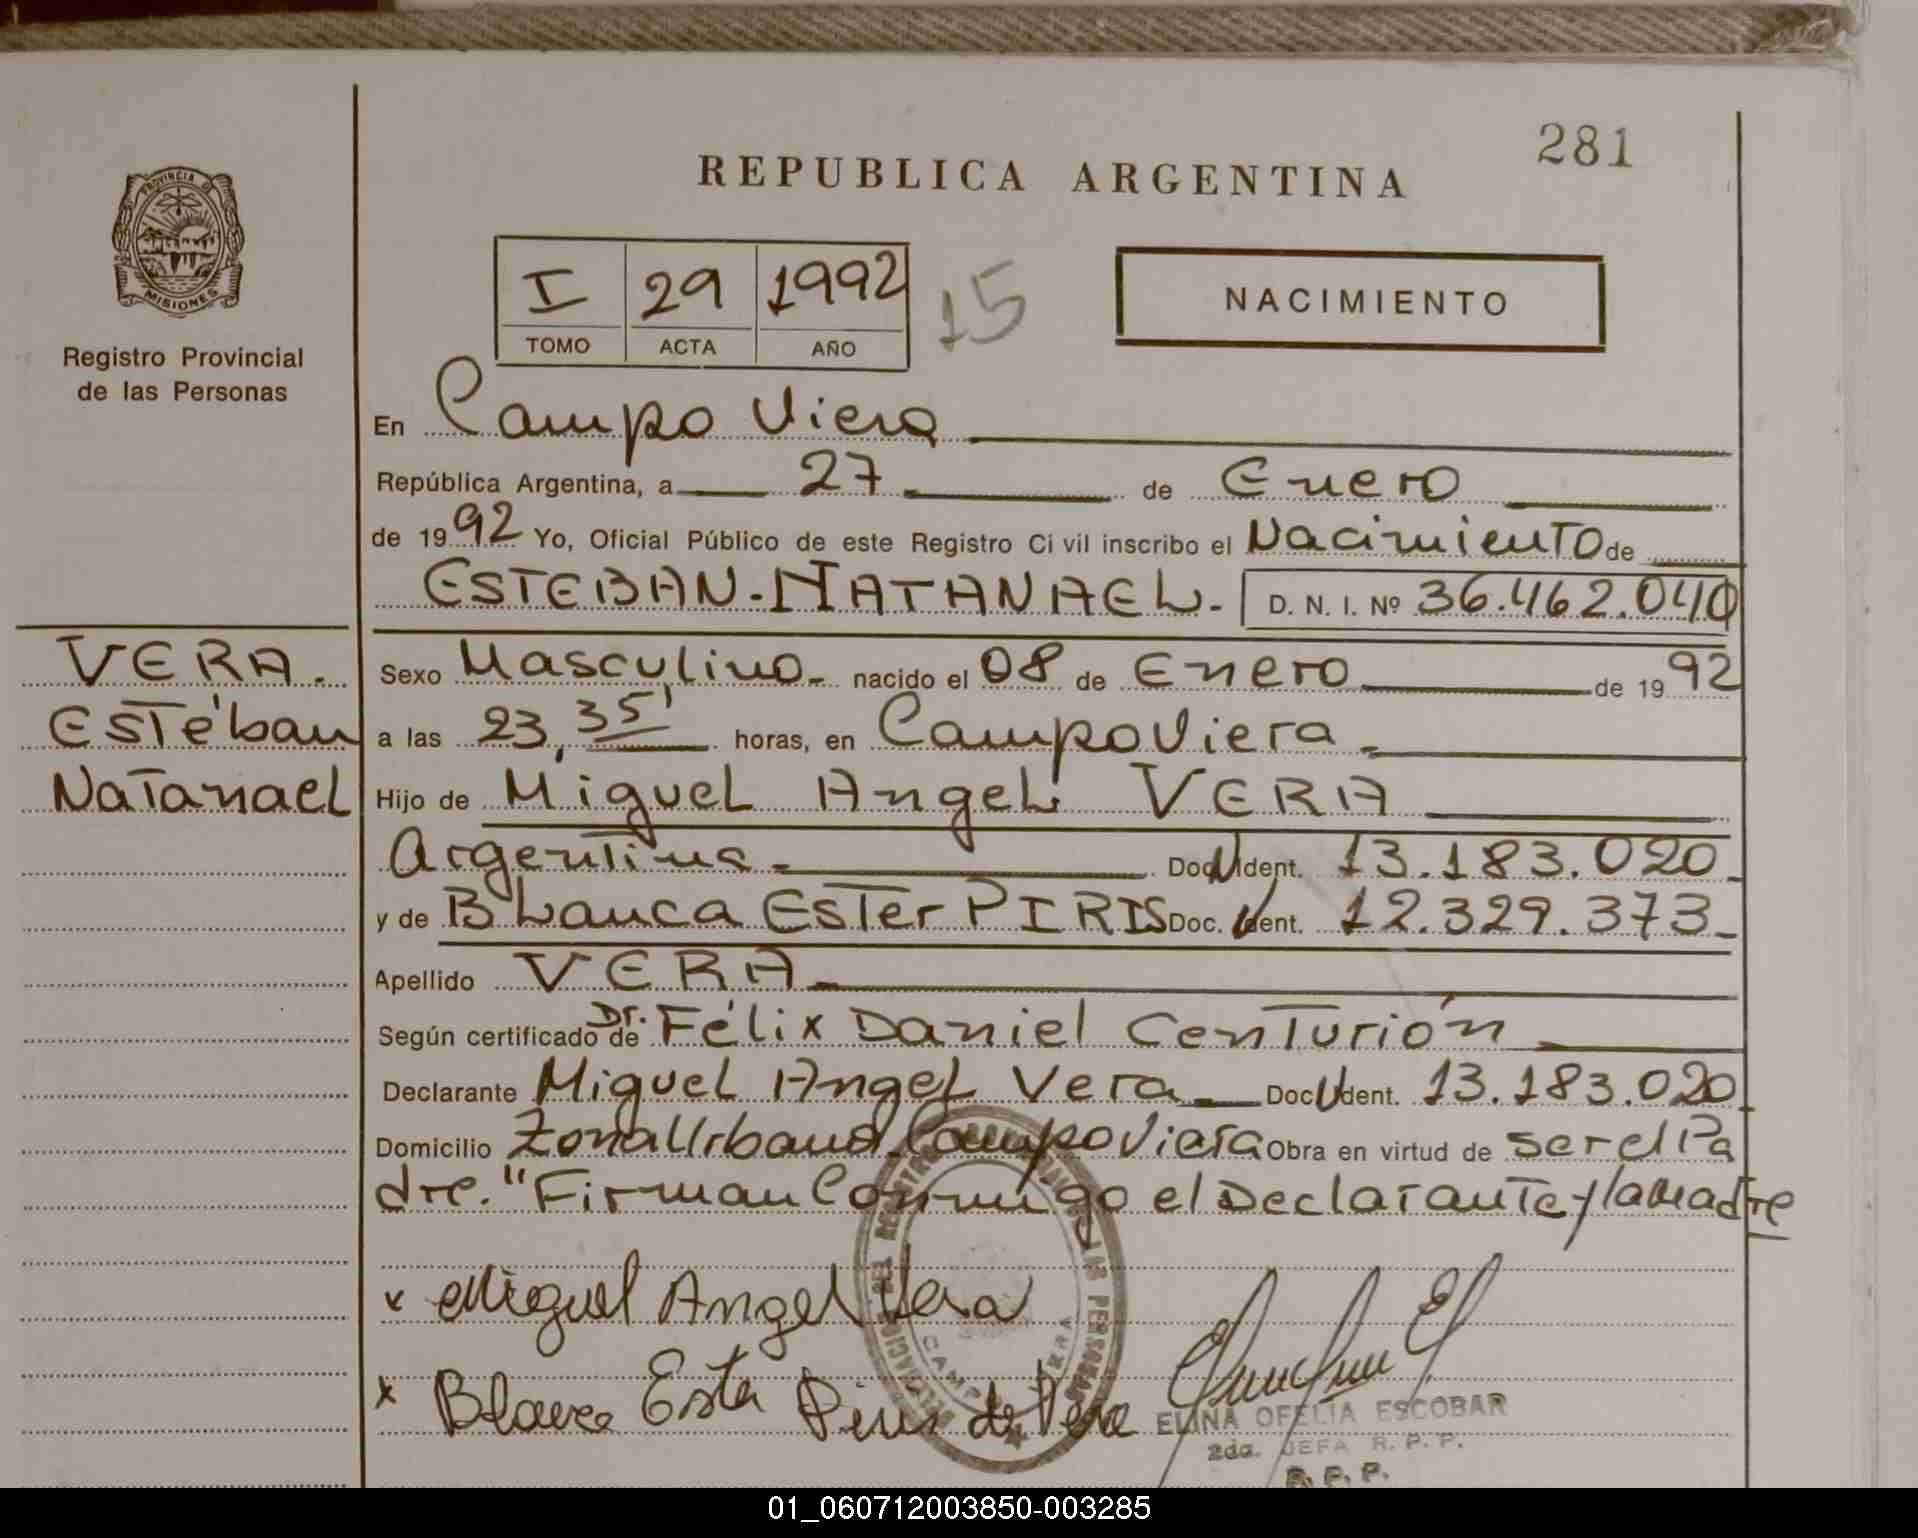 281
REPUBLICA ARGENTINA
PROVINCIA DE
MISIONES
Registro Provincial
de las Personas
I 29 1992 15
TOMO ACTA AÑO
NACIMIENTO
En Campo Viera
República Argentina, a 27 de Enero
de 1992 Yo, Oficial Público de este Registro Civil inscribo el Nacimiento de
ESTEBAN-NATANAEL- D. N. I. Nº 36.462.040
VERA.
Estéban
Natanael
Sexo Masculino- nacido el 08 de Enero de 1992
a las 23,35' horas, en Campo Viera
Hijo de Miguel Angel VERA
Argentina Doc. Ident. 13.183.020
y de Blanca Ester PIRIS Doc. Ident. 12.329.373
Apellido VERA
Según certificado de Dr. Félix Daniel Centurión
Declarante Miguel Angel Vera Doc. Ident. 13.183.020
Domicilio Zona Urbana Campo Viera Obra en virtud de ser el Pa
dre. "Firman Conmigo el Declarante y la Madre
x Miguel Angel Vera
x Blanca Ester Piris de Vera
ELINA OFELIA ESCOBAR
2da. JEFA R. P. P.
R. P. P.
01_060712003850-003285